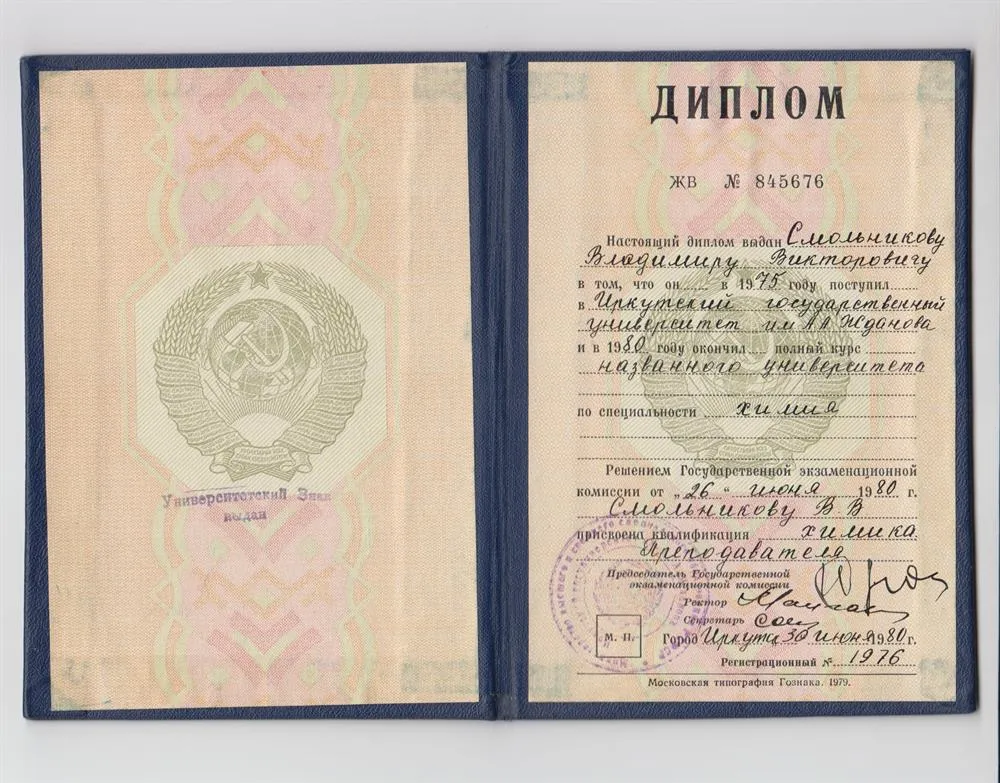 Университетский Знак
выдан
ДИПЛОМ
ЖВ № 845676
Настоящий диплом выдан Смольникову
Владимиру Викторовичу
в том, что он в 1975 году поступил
в Иркутский государственный
университет им А А Жданова
и в 1980 году окончил полный курс
названного университета
по специальности химия
Решением Государственной экзаменационной
комиссии от „26“ июня 1980 г.
Смольникову В. В
присвоена квалификация химика.
Преподавателя
Председатель Государственной
экзаменационной комиссии
Ректор
Секретарь
М. П.
Город Иркутск 30 июня 1980 г.
Регистрационный № 1976
Московская типография Гознака. 1979.